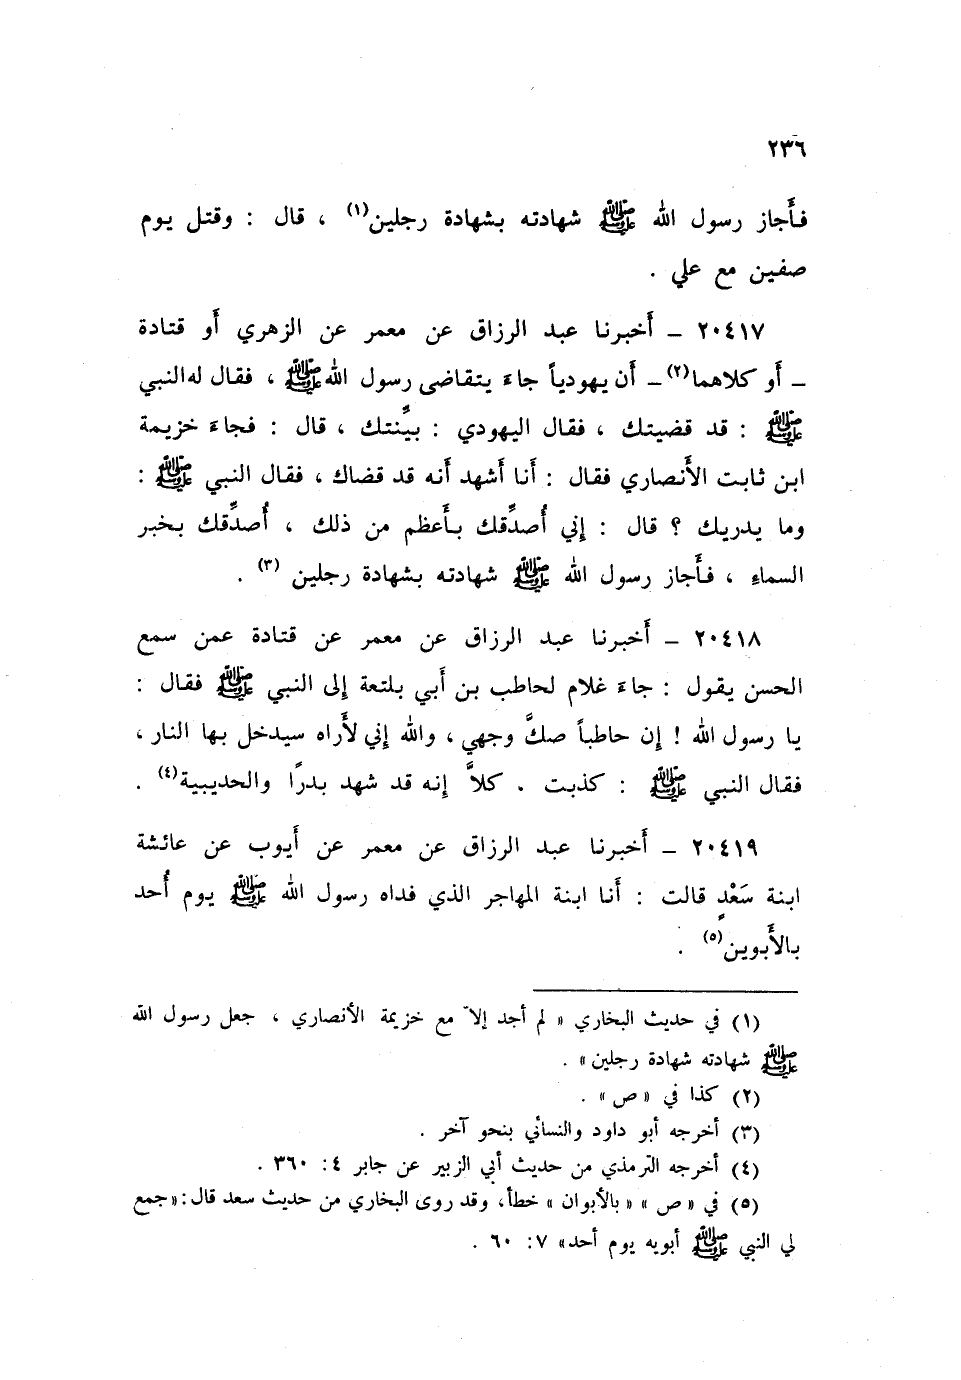 ٢٣٦
فأَجاز رسول الله ﷺ شهادته بشهادة رجلين(١) ، قال : وقتل يوم
صفين مع علي .
٢٠٤١٧ ــ أَخبرنا عبد الرزاق عن معمر عن الزهري أَو قتادة
ــ أَو كلاهما(٢) ــ أَن يهودياً جاءَ يتقاضى رسول الله ﷺ ، فقال له النبي
ﷺ : قد قضيتك ، فقال اليهودي : بيِّنتك ، قال : فجاءَ خزيمة
ابن ثابت الأَنصاري فقال : أَنا أَشهد أَنه قد قضاك ، فقال النبي ﷺ :
وما يدريك ؟ قال : إِني أُصدِّقك بأَعظم من ذلك ، أُصدِّقك بخبر
السماءِ ، فأَجاز رسول الله ﷺ شهادته بشهادة رجلين (٣) .
٢٠٤١٨ ــ أَخبرنا عبد الرزاق عن معمر عن قتادة عمن سمع
الحسن يقول : جاءَ غلام لحاطب بن أَبي بلتعة إِلى النبي ﷺ فقال :
يا رسول الله ! إِن حاطباً صكَّ وجهي ، والله إِني لأَراه سيدخل بها النار ،
فقال النبي ﷺ : كذبت . كلاَّ إِنه قد شهد بدرًا والحديبية(٤) .
٢٠٤١٩ ــ أَخبرنا عبد الرزاق عن معمر عن أَيوب عن عائشة
ابنة سَعْدٍ قالت : أَنا ابنة المهاجر الذي فداه رسول الله ﷺ يوم أُحد
بالأَبوين(٥) .
(١) في حديث البخاري « لم أجد إلاّ مع خزيمة الأنصاري ، جعل رسول الله
ﷺ شهادته شهادة رجلين» .
(٢) كذا في « ص » .
(٣) أخرجه أبو داود والنسائي بنحو آخر .
(٤) أخرجه الترمذي من حديث أبي الزبير عن جابر ٤: ٣٦٠ .
(٥) في « ص » « بالأبوان » خطأ، وقد روى البخاري من حديث سعد قال: «جمع
لي النبي ﷺ أبويه يوم أحد» ٧: ٦٠ .